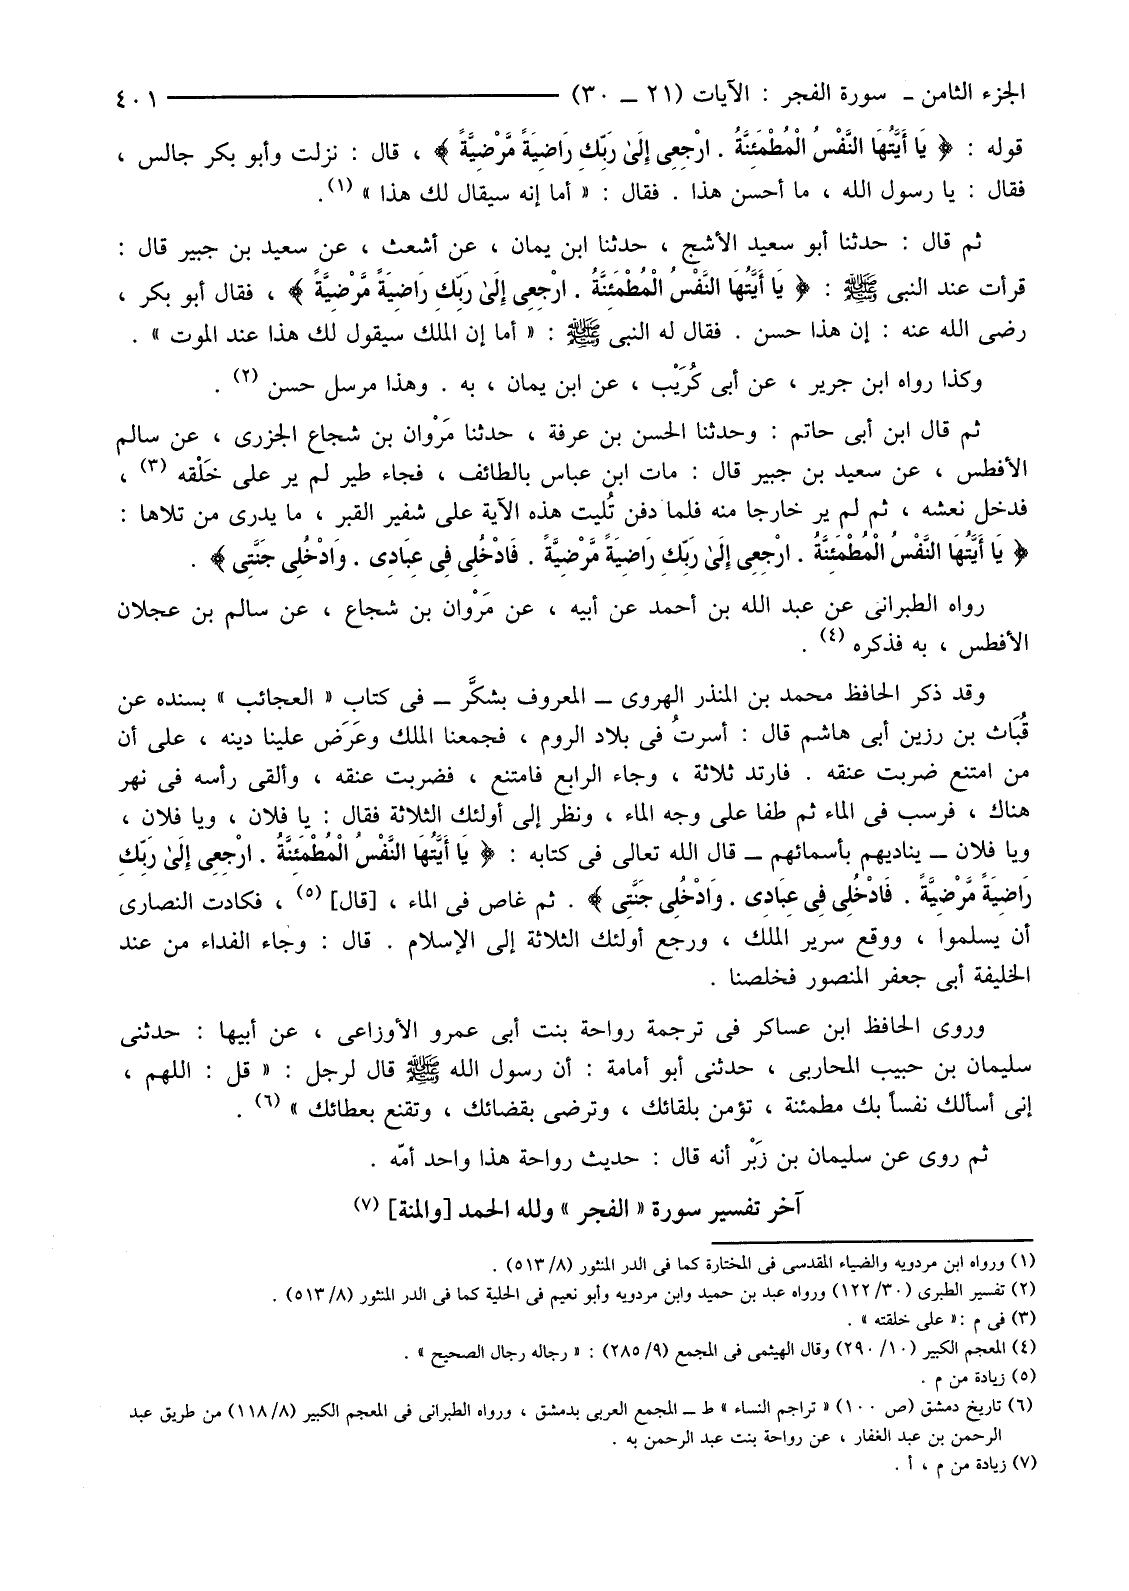 الجزء الثامن ـ سورة الفجر : الآيات (٢١ ـ ٣٠) ٤٠١
قوله : ﴿ يَا أَيَّتُهَا النَّفْسُ الْمُطْمَئِنَّةُ . ارْجِعِى إِلَىٰ رَبِّكِ رَاضِيَةً مَّرْضِيَّةً ﴾ ، قال : نزلت وأبو بكر جالس ،
فقال : يا رسول الله ، ما أحسن هذا . فقال : « أما إنه سيقال لك هذا » (١).
ثم قال : حدثنا أبو سعيد الأشج ، حدثنا ابن يمان ، عن أشعث ، عن سعيد بن جبير قال :
قرأت عند النبى ﷺ : ﴿ يَا أَيَّتُهَا النَّفْسُ الْمُطْمَئِنَّةُ . ارْجِعِى إِلَىٰ رَبِّكِ رَاضِيَةً مَّرْضِيَّةً ﴾ ، فقال أبو بكر ،
رضى الله عنه : إن هذا حسن . فقال له النبى ﷺ : « أما إن الملك سيقول لك هذا عند الموت » .
وكذا رواه ابن جرير ، عن أبى كُرَيْب ، عن ابن يمان ، به . وهذا مرسل حسن (٢) .
ثم قال ابن أبى حاتم : وحدثنا الحسن بن عرفة ، حدثنا مَرْوان بن شجاع الجزرى ، عن سالم
الأفطس ، عن سعيد بن جبير قال : مات ابن عباس بالطائف ، فجاء طير لم ير على خَلْقه (٣) ،
فدخل نعشه ، ثم لم ير خارجا منه فلما دفن تُليت هذه الآية على شفير القبر ، ما يدرى من تلاها :
﴿ يَا أَيَّتُهَا النَّفْسُ الْمُطْمَئِنَّةُ . ارْجِعِى إِلَىٰ رَبِّكِ رَاضِيَةً مَّرْضِيَّةً . فَادْخُلِى فِى عِبَادِى . وَادْخُلِى جَنَّتِى ﴾ .
رواه الطبرانى عن عبد الله بن أحمد عن أبيه ، عن مَرْوان بن شجاع ، عن سالم بن عجلان
الأفطس ، به فذكره (٤) .
وقد ذكر الحافظ محمد بن المنذر الهروى ـ المعروف بشكَّر ـ فى كتاب « العجائب » بسنده عن
قُبَاث بن رزين أبى هاشم قال : أسرتُ فى بلاد الروم ، فجمعنا الملك وعَرَض علينا دينه ، على أن
من امتنع ضربت عنقه . فارتد ثلاثة ، وجاء الرابع فامتنع ، فضربت عنقه ، وألقى رأسه فى نهر
هناك ، فرسب فى الماء ثم طفا على وجه الماء ، ونظر إلى أولئك الثلاثة فقال : يا فلان ، ويا فلان ،
ويا فلان ـ يناديهم بأسمائهم ـ قال الله تعالى فى كتابه : ﴿ يَا أَيَّتُهَا النَّفْسُ الْمُطْمَئِنَّةُ . ارْجِعِى إِلَىٰ رَبِّكِ
رَاضِيَةً مَّرْضِيَّةً . فَادْخُلِى فِى عِبَادِى . وَادْخُلِى جَنَّتِى ﴾ . ثم غاص فى الماء ، [قال] (٥) ، فكادت النصارى
أن يسلموا ، ووقع سرير الملك ، ورجع أولئك الثلاثة إلى الإسلام . قال : وجاء الفداء من عند
الخليفة أبى جعفر المنصور فخلصنا .
وروى الحافظ ابن عساكر فى ترجمة رواحة بنت أبى عمرو الأوزاعى ، عن أبيها : حدثنى
سليمان بن حبيب المحاربى ، حدثنى أبو أمامة : أن رسول الله ﷺ قال لرجل : « قل : اللهم ،
إنى أسألك نفساً بك مطمئنة ، تؤمن بلقائك ، وترضى بقضائك ، وتقنع بعطائك » (٦) .
ثم روى عن سليمان بن زَبْر أنه قال : حديث رواحة هذا واحد أمّه .
آخر تفسير سورة « الفجر » ولله الحمد [والمنة] (٧)
(١) ورواه ابن مردويه والضياء المقدسى فى المختارة كما فى الدر المنثور (٥١٣/٨) .
(٢) تفسير الطبرى (١٢٢/٣٠) ورواه عبد بن حميد وابن مردويه وأبو نعيم فى الحلية كما فى الدر المنثور (٥١٣/٨) .
(٣) فى م :« على خلقته » .
(٤) المعجم الكبير (٢٩٠/١٠) وقال الهيثمى فى المجمع (٢٨٥/٩) : « رجاله رجال الصحيح » .
(٥) زيادة من م .
(٦) تاريخ دمشق (ص ١٠٠) « تراجم النساء » ط ـ المجمع العربى بدمشق ، ورواه الطبرانى فى المعجم الكبير (١١٨/٨) من طريق عبد
الرحمن بن عبد الغفار ، عن رواحة بنت عبد الرحمن به .
(٧) زيادة من م ، أ .